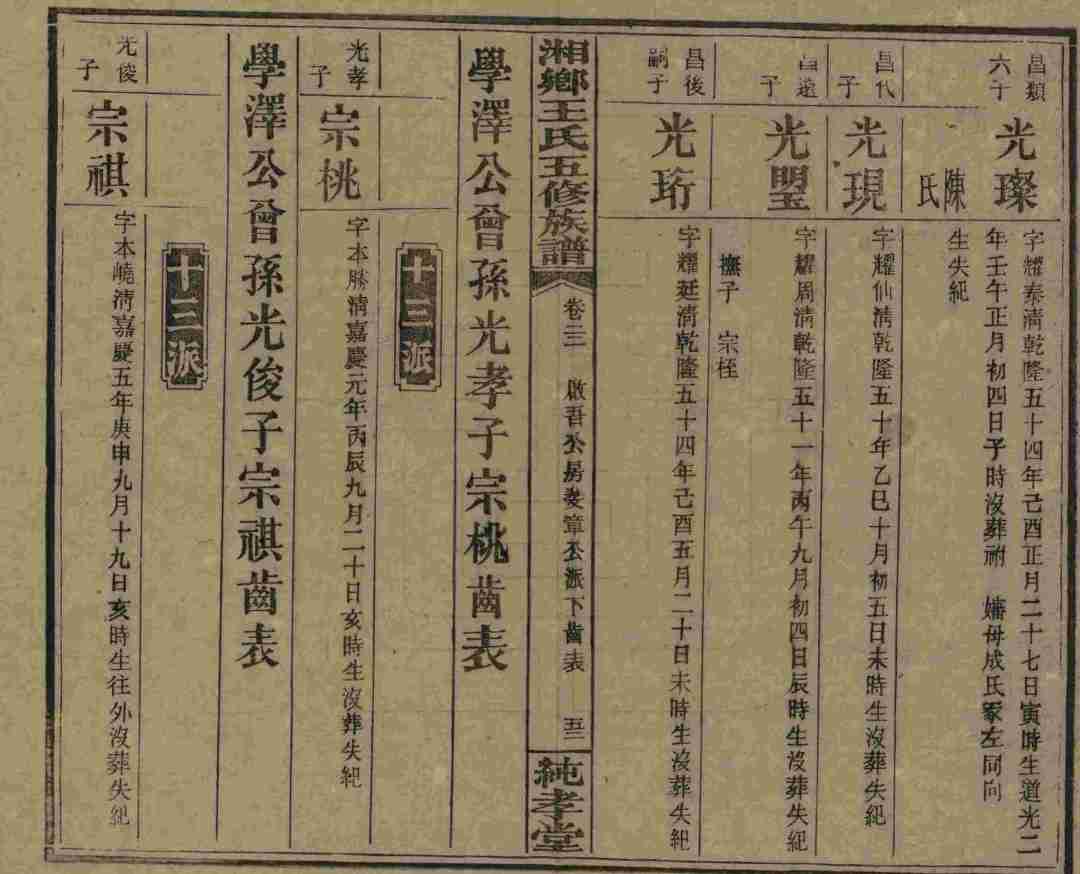 昌類
六子
光璨
字耀秦清乾隆五十四年己酉正月二十七日寅時生道光二
年壬午正月初四日子時沒葬祔 嬸母成氏冢左同向
陳氏
生失紀
昌代
子
光現
字耀仙清乾隆五十年乙巳十月初五日未時生沒葬失紀
昌遠
子
光曌
字耀周清乾隆五十一年丙午九月初四日辰時生沒葬失紀
撫子 宗桎
昌後
嗣子
光珩
字耀廷清乾隆五十四年己酉五月二十日未時生沒葬失紀
湘鄉王氏五修族譜
卷三
啟吾公房
章公派下齒表
純孝堂
學澤公曾孫光孝子宗桃齒表
十三派
光孝
子
宗桃
字本勝清嘉慶元年丙辰九月二十日亥時生沒葬失紀
學澤公曾孫光俊子宗祺齒表
十三派
光俊
子
宗祺
字本嶢清嘉慶五年庚申九月十九日亥時生往外沒葬失紀